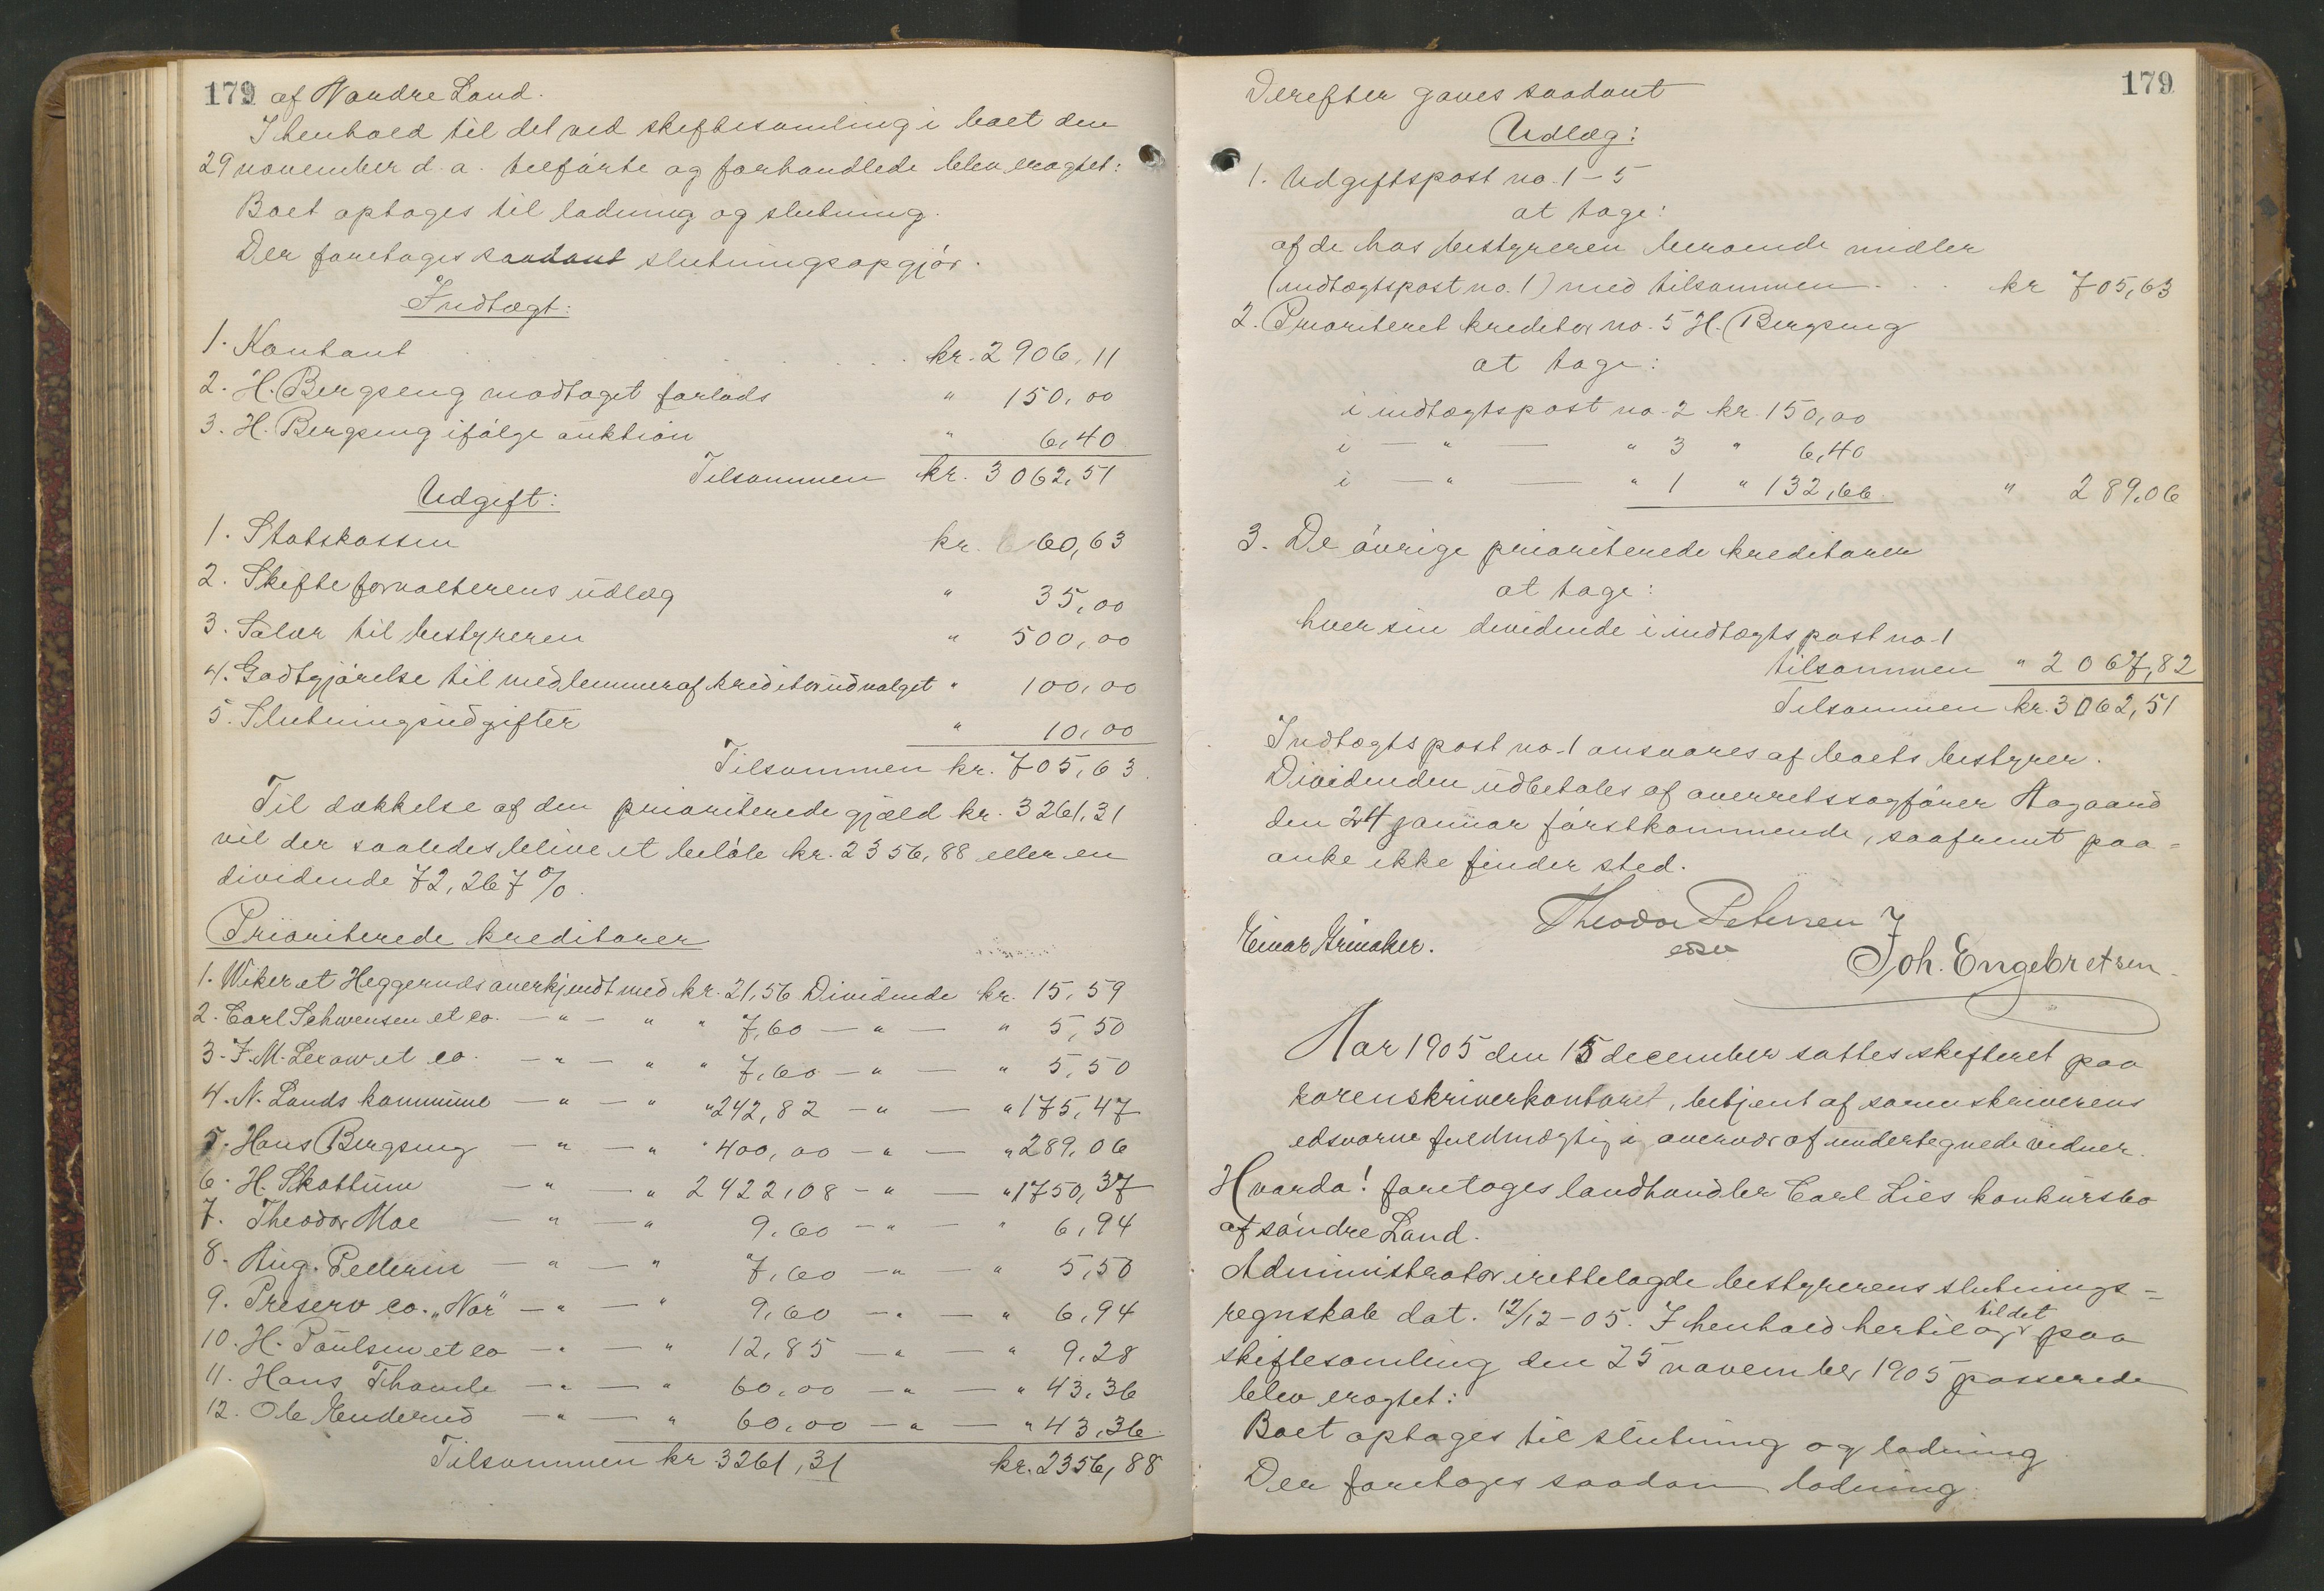 179 af Nordre Land.
I henhold til det ved skiftesamling i boet den
29 november d. a. tilførte og forhandlede blev eragtet:
Boet optages til ladning og slutning.
Der foretages saadant slutningsopgjør.
Indtægt:
1. Kontant . . . . . . kr. 2906,11
2. H. Bergseng modtaget forlods " 150,00
3. H. Bergseng ifølge auktion " 6,40
Tilsammen kr. 3062,51
Udgift:
1. Statskassen kr. 60,63
2. Skifteforvalterens udlæg " 35,00
3. Salær til bestyreren " 500,00
4. Godtgjørelse til medlemmer af kreditorudvalget " 100,00
5. Slutningsudgifter " 10,00
Tilsammen kr. 705,63.
Til dækkelse af den prioriterede gjæld kr. 3261,31
vil der saaledes blive et beløb kr. 2356,88 eller en
dividende 72,267 %.
Prioriterede kreditorer
1. Wiker et Heggeruds anerkjendt med kr. 21,56 Dividende kr. 15,59
2. Carl Schwensen et co. — " — " " 7,60 — " — " 5,50
3. F. M. Lexow et co. — " — " " 7,60 — " — " 5,50
4. N. Lands kommune — " — " " 242,82 — " — " 175,47
5. Hans Bergseng — " — " " 400,00 — " — " 289,06
6. H. Skattum — " — " 2422,08 — " — " 1750,37
7. Theodor Moe — " — " 9,60 — " — " 6,94
8. Aug. Pellerin — " — " 7,60 — " — " 5,50
9. Preserv co. "Nor" — " — " 9,60 — " — " 6,94
10. H. Poulsen et co — " — " 12,85 — " — " 9,28
11. Hans Thomle — " — " 60,00 — " — " 43,36
12. Ole Enderud — " — " 60,00 — " — " 43,36.
Tilsammen kr 3261,31 kr. 2356,88
179
Derefter gaves saadant
Udlæg:
1. Udgiftspost no. 1-5
at tage:
af de hos bestyreren beroende midler
(indtægtspost no. 1) med tilsammen . . . kr 705,63
2. Prioriteret kreditor no. 5 H. Bergseng
at tage:
i indtægtspost no. 2 kr. 150,00
i — " — " 3 " 6,40
i — " — " 1 " 132,66 " 289,06
3. De øvrige prioriterede kreditorer
at tage:
hver sin dividende i indtægtspost no. 1
tilsammen " 2067,82
Tilsammen kr. 3062,51
Indtægtspost no. 1 ansvares af boets bestyrer.
Dividenden udbetales af overretssagfører Aagaard
den 24 januar førstkommende, saafremt paa=
anke ikke finder sted.
Theodor Petersen
edsv
Einar Grinaker.
Joh. Engebretsen.
Aar 1905 den 15 december sattes skifteret paa
sorenskriverkontoret, betjent af sorenskriverens
edsvorne fuldmægtig i overvær af undertegnede vidner.
Hvorda! foretoges landhandler Carl Lies konkursbo
af søndre Land.
Administrator irettelagde bestyrerens slutnings=
regnskab dat. 12/12-05. I henhold hertil og til det paa
skiftesamling den 25 november 1905 passerede
blev eragtet:
Boet optages til slutning og ladning
Der foretoges saadan ladning.